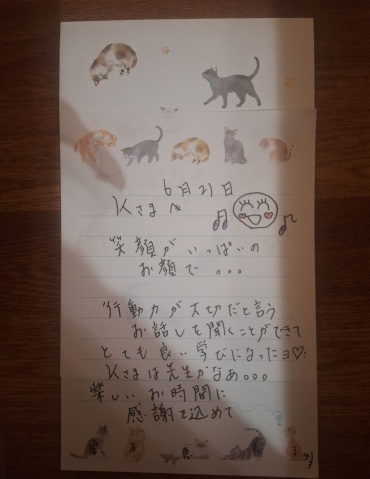 6月21日
Kさまへ
笑顔がいっぱいの
お顔で...
行動力が大切だと言う
お話しを聞くことができて
とても良い学びになったヨ♡
Kさまは先生かなぁ...
楽しいお時間に
感謝を込めて